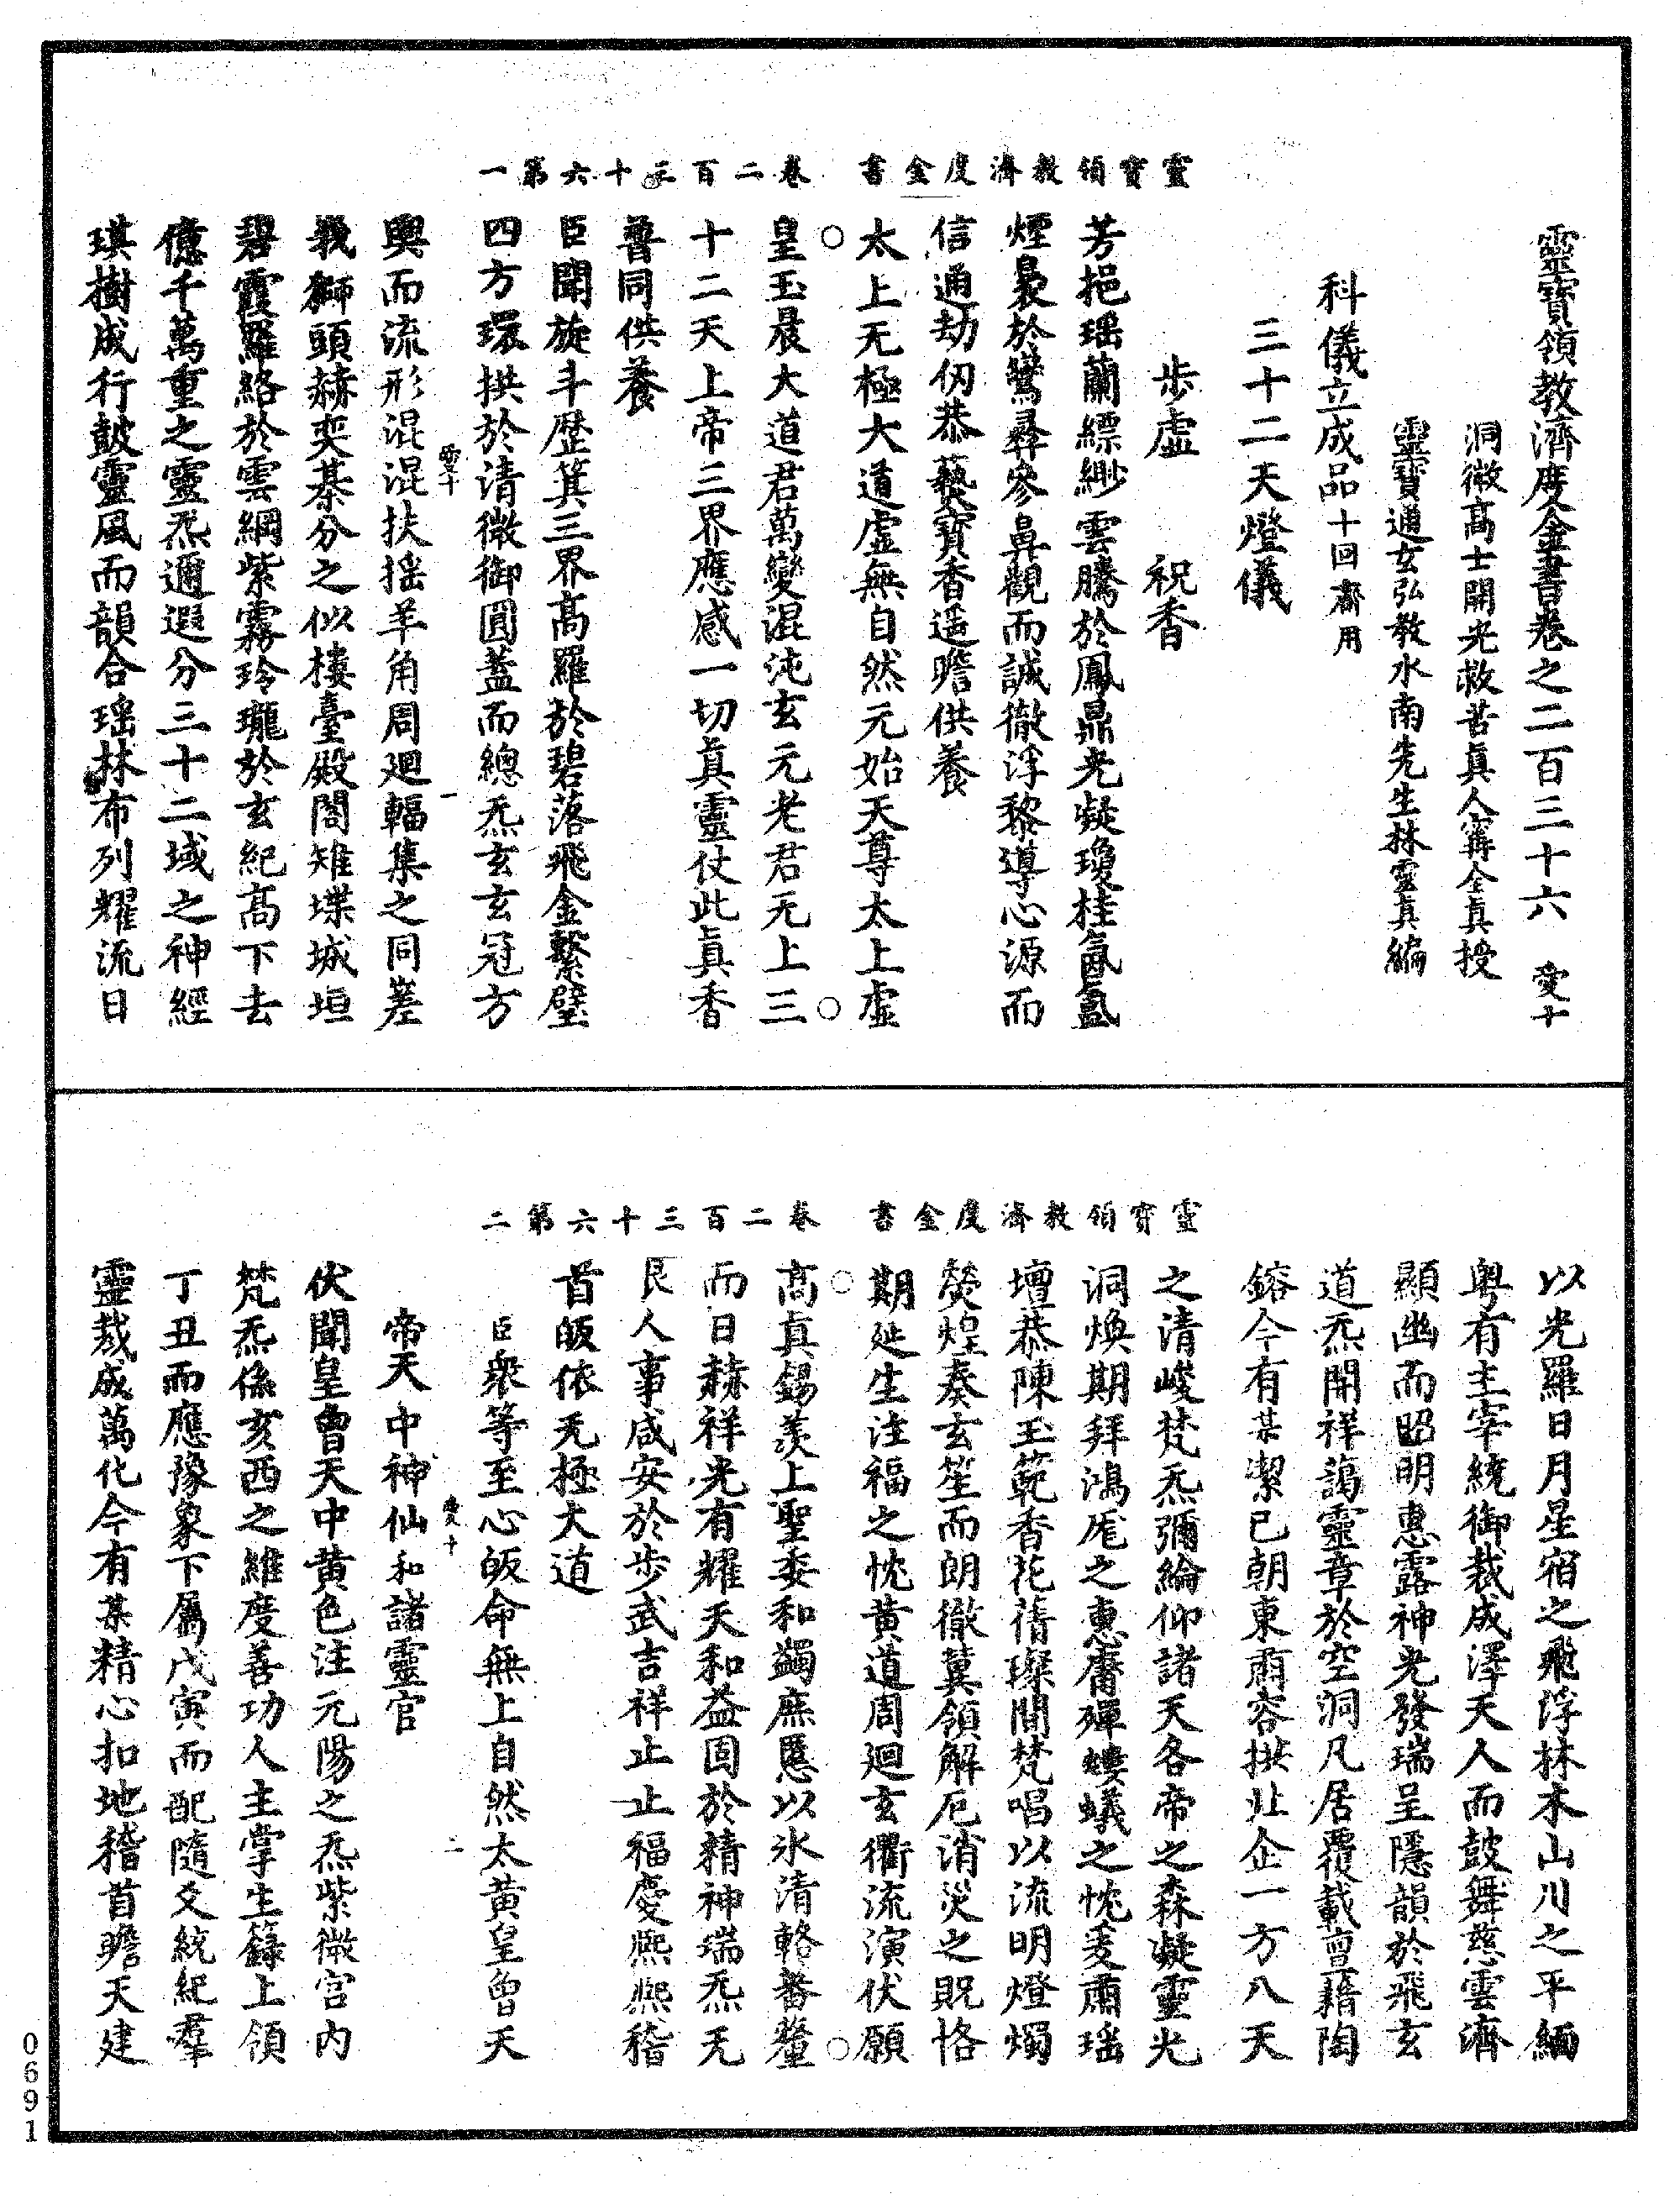 靈寶領教濟度金書卷之二百三十六 愛十
洞微高士開光救苦真人甯全真授
靈寶通玄弘教水南先生林靈真編
科儀立成品十回齋用
三十二天燈儀
步虛 祝香
芳挹瑶蘭縹緲雲騰於鳳鼎光凝瓊桂氤氳
煙裊於鸞彝參鼻觀而誠徹浮黎導心源而
信通劫仞恭爇寶香遥瞻供養
太上无極大道虛無自然元始天尊太上虛
皇玉晨大道君萬變混沌玄元老君无上三
十二天上帝三界應感一切真靈仗此真香
普同供養
臣聞旋斗歷箕三界高羅於碧落飛金繫璧
四方環拱於清微御圓蓋而總炁玄玄冠方
輿而流形混混扶摇羊角周廻輻集之同差
峩獅頭赫奕棊分之似樓臺殿閣雉堞城垣
碧霞羅絡於雲綱紫霧玲瓏於玄紀高下去
億千萬重之靈炁邇遐分三十二域之神經
琪樹成行皷靈風而韻合瑶林布列耀流日
靈寶領教濟度金書 卷二百三十六第一
愛十 一
以光羅日月星宿之飛浮林木山川之平緬
粤有主宰統御裁成澤天人而鼓舞慈雲濟
顯幽而昭明惠露神光發瑞呈隱韻於飛玄
道炁開祥藹靈章於空洞凡居覆載亶藉陶
鎔今有某潔已朝東肅容拱北企一方八天
之清峻梵炁彌綸仰諸天各帝之森凝靈光
洞煥期拜鴻厖之惠庸殫螻蟻之忱爰肅瑶
壇恭陳玉範香花蒨璨間梵唱以流明燈燭
熒煌奏玄笙而朗徹冀領解厄消災之貺恪
期延生注福之忱黄道周廻玄衢流演伏願
高真錫羡上聖委和蠲庶慝以氷清輅蕃釐
而日赫祥光有耀天和益固於精神瑞炁无
艮人事咸安於步武吉祥止止福慶熈熈稽
首皈依无極大道
臣衆等至心皈命無上自然太黄皇曾天
帝天中神仙和諸靈官
伏聞皇曾天中黄色注元陽之炁紫微宫内
梵炁係亥西之維度善功人主掌生籙上領
丁丑而應豫象下屬戊寅而配隨爻統紀羣
靈裁成萬化今有某精心扣地稽首瞻天建
靈寶領教濟度金書 卷二百三十六第二
愛十 二
0691